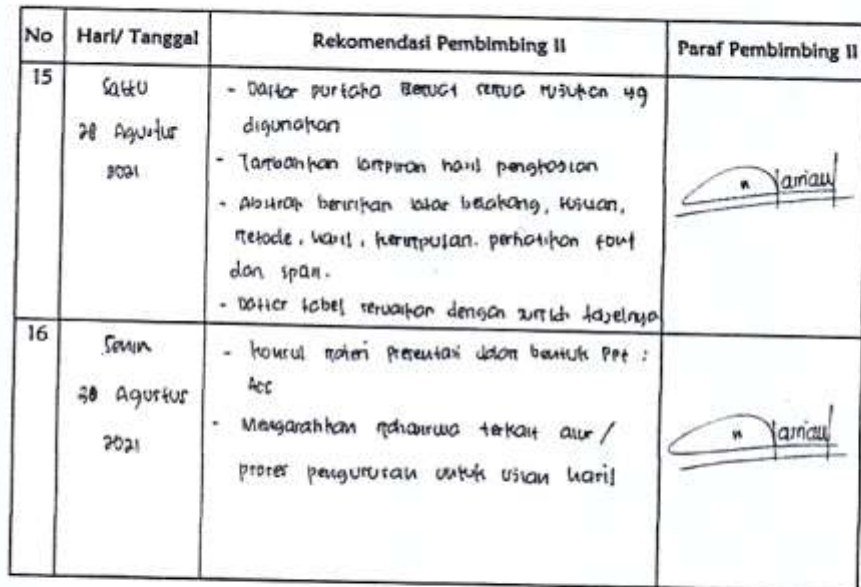 No Hari/ Tanggal Rekomendasi Pembimbing II Paraf Pembimbing II
15 Sabtu
28 Agustus
2021
- Daftar pustaka sesuai rujukan yg
digunakan
- Tambahkan lampiran hasil pengkajian
- Abstrak berisikan latar belakang, tujuan,
metode, hasil, kesimpulan. perhatikan font
dan spasi.
- Daftar tabel sesuaikan dengan jumlah tabelnya
16 Senin
Agustus
2021
- konsul materi presentasi dalam bentuk PPt :
Acc
- Mengarahkan mahasiswa terkait alur /
proses pengurusan untuk ujian hasil